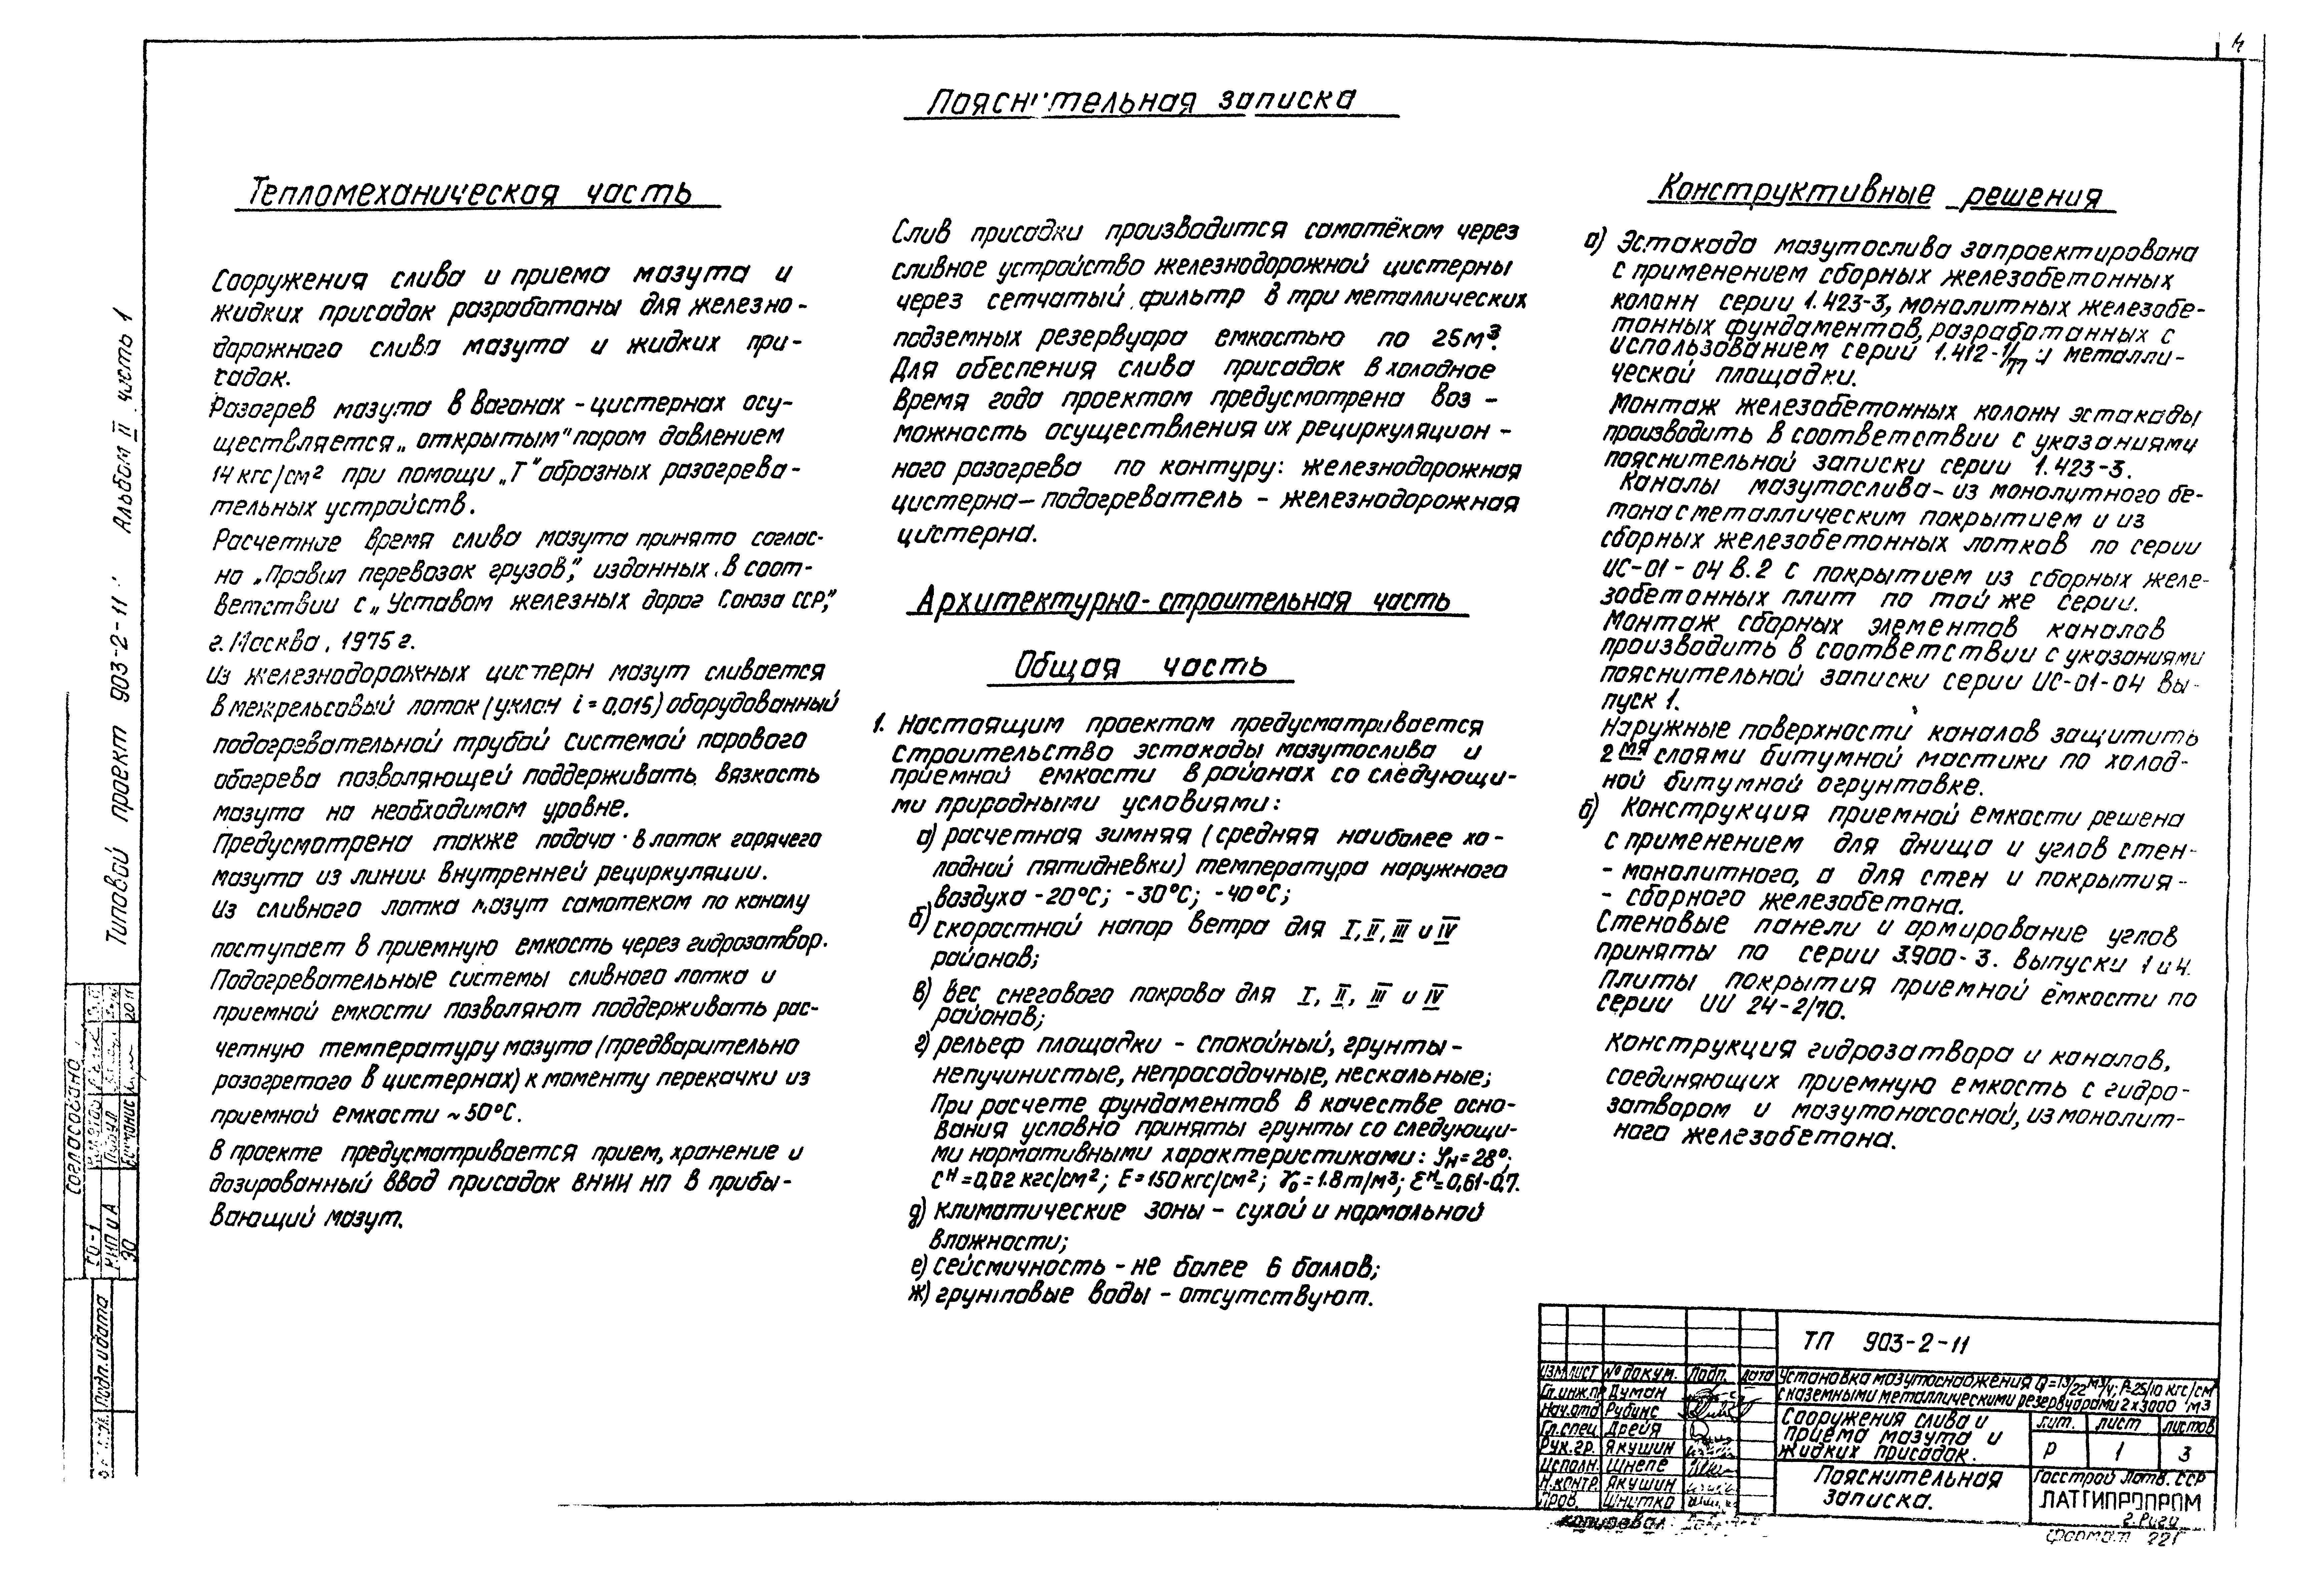 4
Пояснительная записка
Тепломеханическая часть
Сооружения слива и приема мазута и
жидких присадок разработаны для железно-
дорожного слива мазута и жидких при-
садок.
Разогрев мазута в вагонах-цистернах осу-
ществляется „открытым" паром давлением
14 кгс/см² при помощи „Т" образных разогрева-
тельных устройств.
Расчетное время слива мазута принято соглас-
но „Правил перевозок грузов", изданных в соот-
ветствии с „Уставом железных дорог Союза ССР",
г. Москва, 1975 г.
Из железнодорожных цистерн мазут сливается
в межрельсовый лоток (уклон i = 0,015) оборудованный
подогревательной трубой системой парового
обогрева позволяющей поддерживать вязкость
мазута на необходимом уровне.
Предусмотрена также подача в лоток горячего
мазута из линии внутренней рециркуляции.
Из сливного лотка мазут самотеком по каналу
поступает в приемную емкость через гидрозатвор.
Подогревательные системы сливного лотка и
приемной емкости позволяют поддерживать рас-
четную температуру мазута (предварительно
разогретого в цистернах) к моменту перекачки из
приемной емкости ~ 50°С.
В проекте предусматривается прием, хранение и
дозированный ввод присадок ВНИИ НП в прибы-
вающий мазут.
Слив присадки производится самотёком через
сливное устройство железнодорожной цистерны
через сетчатый фильтр в три металлических
подземных резервуара емкостью по 25 м³.
Для обеспения слива присадок в холодное
время года проектом предусмотрена воз-
можность осуществления их рециркуляцион-
ного разогрева по контуру: железнодорожная
цистерна — подогреватель - железнодорожная
цистерна.
Архитектурно-строительная часть
Общая часть
1. Настоящим проектом предусматривается
строительство эстакады мазутослива и
приемной емкости в районах со следующи-
ми природными условиями:
а) расчетная зимняя (средняя наиболее хо-
лодной пятидневки) температура наружного
воздуха -20°С; -30°С; -40°С;
б) скоростной напор ветра для I, II, III и IV
районов;
в) вес снегового покрова для I, II, III и IV
районов;
г) рельеф площадки - спокойный, грунты-
непучинистые, непросадочные, нескальные;
При расчете фундаментов в качестве осно-
вания условно приняты грунты со следующи-
ми нормативными характеристиками: φн = 28°;
Cᴴ = 0,02 кгс/см²; E = 150 кгс/см²; γ₀ = 1.8 т/м³; Ɛᴴ = 0,61-0,7.
д) климатические зоны - сухой и нормальной
влажности;
е) сейсмичность - не более 6 баллов;
ж) грунтовые воды - отсутствуют.
Конструктивные решения
а) Эстакада мазутослива запроектирована
с применением сборных железобетонных
колонн серии 1.423-3, монолитных железобе-
тонных фундаментов, разработанных с
использованием серий 1.412-1/77 и металли-
ческой площадки.
Монтаж железобетонных колонн эстакады
производить в соответствии с указаниями
пояснительной записки серии 1.423-3.
Каналы мазутослива - из монолитного бе-
тона с металлическим покрытием и из
сборных железобетонных лотков по серии
ИС-01-04 в.2 с покрытием из сборных желе-
зобетонных плит по той же серии.
Монтаж сборных элементов каналов
производить в соответствии с указаниями
пояснительной записки серии ИС-01-04 вы-
пуск 1.
Наружные поверхности каналов защитить
2мя слоями битумной мастики по холод-
ной битумной огрунтовке.
б) Конструкция приемной емкости решена
с применением для днища и углов стен-
- монолитного, а для стен и покрытия-
- сборного железобетона.
Стеновые панели и армирование углов
приняты по серии 3.900-3. Выпуски 1 и 4.
Плиты покрытия приемной ёмкости по
серии ИИ 24-2/70.
Конструкция гидрозатвора и каналов,
соединяющих приемную емкость с гидро-
затвором и мазутонасосной, из монолит-
ного железобетона.
Типовой проект 903-2-11 Альбом II часть 1
Согласовано
ТО-1
КИП и А
ЭО
Подп. и дата
ТП 903-2-11
Изм Лист № докум. Подп. Дата
Гл.инж.пр Думан
Нач.отд Рубинс
Гл.спец Дрейя
Рук.гр. Якушин
Исполн. Шнепе
Н.контр. Якушин
Пров. Шнитко
Установка мазутоснабжения Q=13/22 м³/ч; P=25/10 кгс/см²
с наземными металлическими резервуарами 2х3000 м³
Сооружения слива и
приема мазута и
жидких присадок.
Лит. Лист Листов
Р 1 3
Пояснительная
записка.
Госстрой Латв. ССР
ЛАТГИПРОПРОМ
г. Рига
Копировал
Формат 22Г